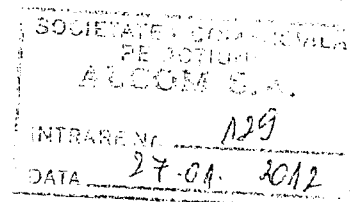 SOCIETATE COMERCIALA
PE ACTIUNI
ALCOM S.A.
INTRARE Nr. 129
DATA 27.01. 2012